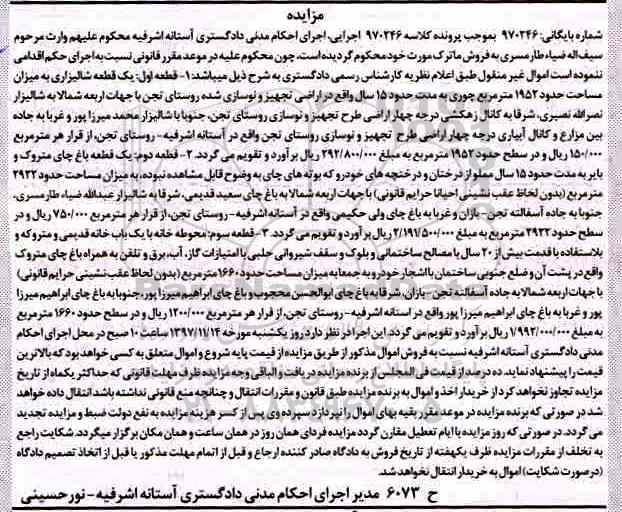 مزایده
شماره بایگانی: ۹۷۰۲۴۶ بموجب پرونده کلاسه ۹۷۰۲۴۶ اجرایی، اجرای احکام مدنی دادگستری آستانه اشرفیه محکوم علیهم وارث مرحوم
سیف‌اله ضیاء طارمسری به فروش ماترک مورث خود محکوم گردیده است، چون محکوم علیه در موعد مقرر قانونی نسبت به اجرای حکم اقدامی
ننموده است اموال غیر منقول طبق اعلام نظریه کارشناس رسمی دادگستری به شرح ذیل میباشد: ۱- قطعه اول: یک قطعه شالیزاری به میزان
مساحت حدود ۱۹۵۲ مترمربع چوری به مدت حدود ۱۵ سال واقع در اراضی تجهیز و نوسازی شده روستای تجن با جهات اربعه شمالا به شالیزار
نصراله نصیری، شرقا به کانال زهکشی درجه چهار اراضی طرح تجهیز و نوسازی روستای تجن، جنوبا با شالیزار محمد میرزا پور و غربا به جاده
بین مزارع و کانال آبیاری درجه چهار اراضی طرح تجهیز و نوسازی روستای تجن واقع در آستانه اشرفیه- روستای تجن، از قرار هر مترمربع
۱۵۰/۰۰۰ ریال و در سطح حدود ۱۹۵۲ مترمربع به مبلغ ۲۹۲/۸۰۰/۰۰۰ ریال برآورد و تقویم می گردد. ۲- قطعه دوم: یک قطعه باغ چای متروک و
بایر به مدت حدود ۱۵ سال مملو از درختان و درختچه های خودرو که بوته های چای به وضوح قابل مشاهده نبوده، به میزان مساحت حدود ۲۹۲۲
مترمربع (بدون لحاظ عقب نشینی احیانا حرایم قانونی) با جهات اربعه شمالا به باغ چای سعید قدیمی، شرقا به شالیزار عبدالله ضیاء طارمسری،
جنوبا به جاده آسفالته تجن- بازان و غربا به باغ چای ولی حکیمی واقع در آستانه اشرفیه- روستای تجن، از قرار هر مترمربع ۷۵۰/۰۰۰ ریال و در
سطح حدود ۲۹۲۲ مترمربع به مبلغ ۲/۱۹۱/۵۰۰/۰۰۰ ریال برآورد و تقویم می گردد. ۳- قطعه سوم: محوطه خانه با یک باب خانه قدیمی و متروکه و
بلااستفاده با قدمت بیش از ۲۰ سال با مصالح ساختمانی و بلوک و سقف شیروانی حلبی با امتیازات گاز، آب، برق و تلفن به همراه باغ چای متروک
واقع در پشت آن و ضلع جنوبی ساختمان با اشجار خودرو به جمعا به میزان مساحت حدود ۱۶۶۰ مترمربع (بدون لحاظ عقب نشینی حرایم قانونی)
با جهات اربعه شمالا به جاده آسفالته تجن- بازان، شرقا به باغ چای ابوالحسن محجوب و باغ چای ابراهیم میرزا پور، جنوبا به باغ چای ابراهیم میرزا
پور و غربا به باغ چای ابراهیم میرزا پور واقع در آستانه اشرفیه- روستای تجن، از قرار هر مترمربع ۱۲۰۰/۰۰۰ ریال و در سطح حدود ۱۶۶۰ مترمربع
به مبلغ ۱/۹۹۲/۰۰۰/۰۰۰ ریال برآورد و تقویم می گردد. این اجرا در نظر دارد روز یکشنبه مورخه ۱۳۹۷/۱۱/۱۴ ساعت ۱۰ صبح در محل اجرای احکام
مدنی دادگستری آستانه اشرفیه نسبت به فروش اموال مذکور از طریق مزایده از قیمت پایه شروع و اموال متعلق به کسی خواهد بود که بالاترین
قیمت را پیشنهاد نماید. ده درصد از قیمت فی المجلس از برنده مزایده دریافت و الباقی وجه مزایده ظرف مهلت قانونی که حداکثر یکماه از تاریخ
مزایده تجاوز نخواهد کرد از خریدار اخذ و اموال به برنده مزایده طبق قانون و مقررات انتقال و چنانچه منع قانونی نداشته باشد انتقال داده خواهد
شد در صورتی که برنده مزایده در موعد مقرر بقیه بهای اموال را نپردازد سپرده وی پس از کسر هزینه مزایده به نفع دولت ضبط و مزایده تجدید
می گردد. در صورتی که روز مزایده با ایام تعطیل مقارن گردد مزایده فردای همان روز در همان ساعت و همان مکان برگزار میگردد. شکایت راجع
به تخلف از مقررات مزایده ظرف یکهفته از تاریخ فروش به دادگاه صادر کننده ارجاع و قبل از اتمام مهلت مذکور یا قبل از اتخاذ تصمیم دادگاه
(در صورت شکایت) اموال به خریدار انتقال نخواهد شد.
ح ۶۰۷۳ مدیر اجرای احکام مدنی دادگستری آستانه اشرفیه- نورحسینی